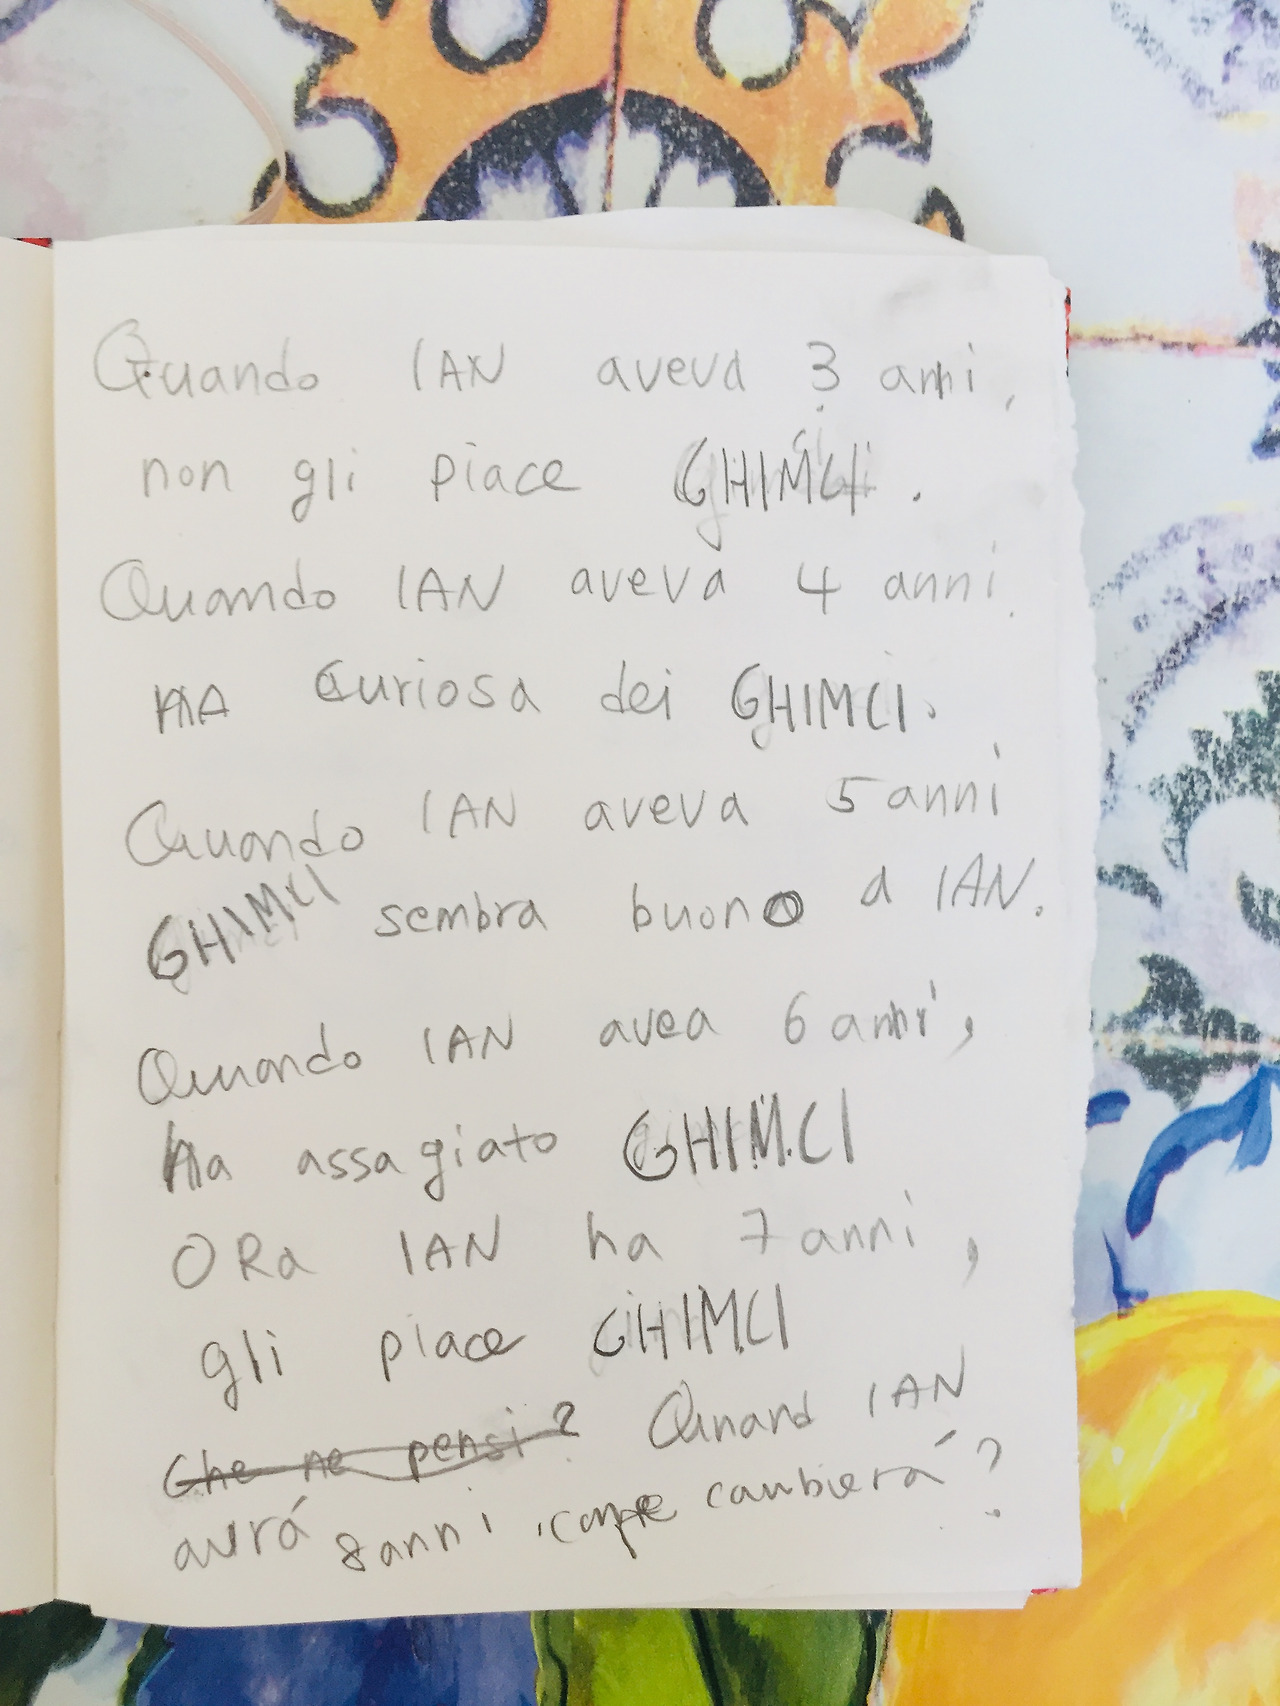 Quando IAN aveva 3 anni,
non gli piace GHIMCI.
Quando IAN aveva 4 anni.
HA Curiosa dei GHIMCI.
Quando IAN aveva 5 anni
GHIMCI sembra buono a IAN.
Quando IAN avea 6 anni,
ha assagiato GHIMCI
ORa IAN ha 7 anni,
gli piace GHIMCI
Che ne pensi? Quand IAN
avrá 8 anni, come cambierá?